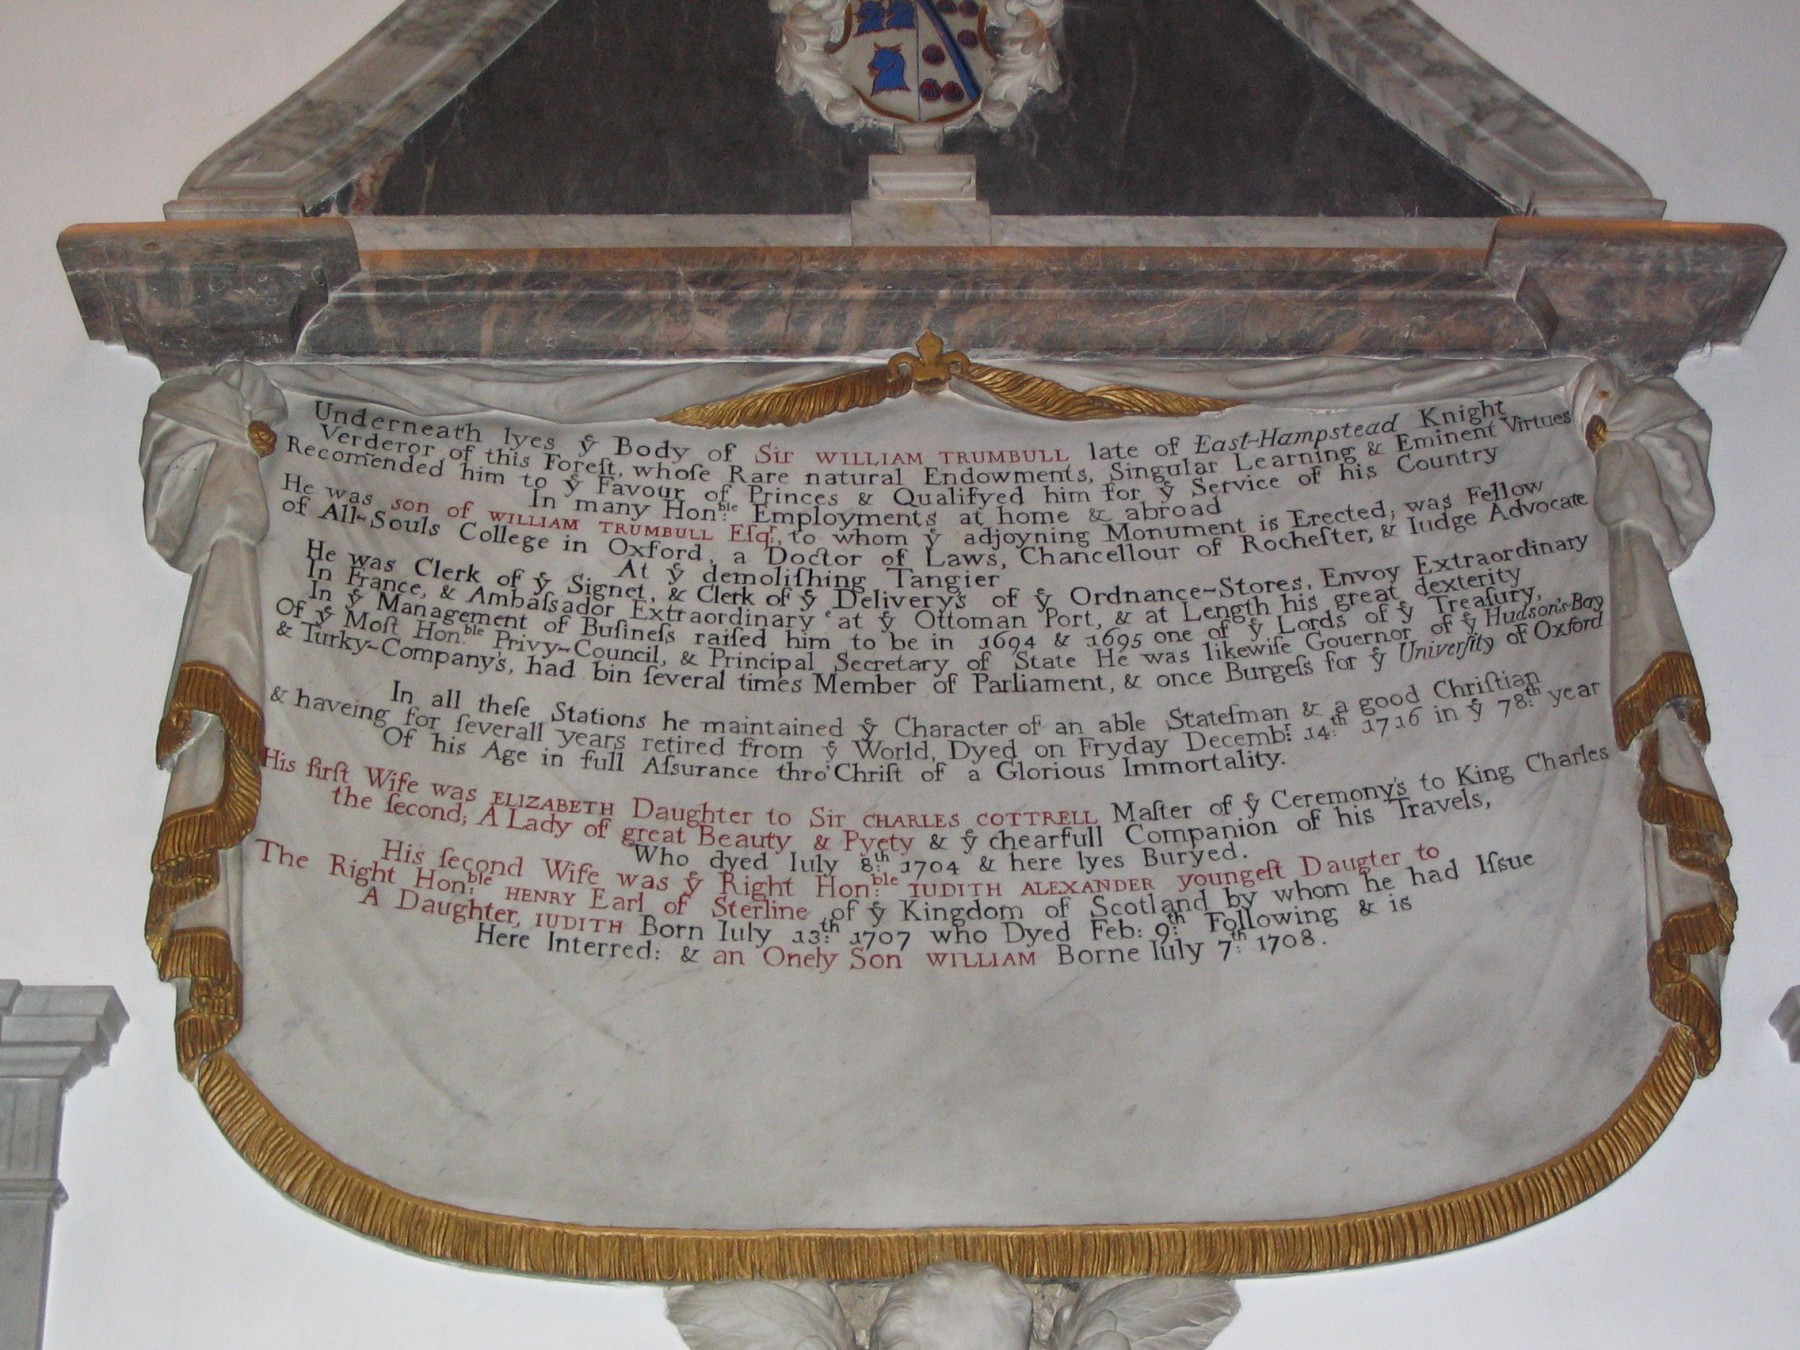 Underneath lyes yͤ Body of Sir WILLIAM TRUMBULL late of East-Hampstead Knight
Verderor of this Foreſt, whoſe Rare natural Endowments, Singular Learning & Eminent Virtues
Recom̄ended him to yͤ Favour of Princes & Qualifyed him for yͤ Service of his Country
In many Hon:ble Employments at home & abroad
He was son of WILLIAM TRUMBULL Eſqr; to whom yͤ adjoyning Monument is Erected; was Fellow
of All-Souls College in Oxford, a Doctor of Laws, Chancellour of Rocheſter, & Iudge Advocate
At yͤ demoliſhing Tangier
He was Clerk of yͤ Signet, & Clerk of yͤ Delivery's of yͤ Ordnance-Stores, Envoy Extraordinary
In France, & Ambaſsador Extraordinary at yͤ Ottoman Port, & at Length his great dexterity
In yͤ Management of Buſineſs raiſed him to be in 1694 & 1695 one of yͤ Lords of yͤ Treaſury,
Of yͤ Moſt Hon:ble Privy-Council, & Principal Secretary of State He was likewiſe Gouernor of yͤ Hudson's-Bay
& Turky-Company's, had bin ſeveral times Member of Parliament, & once Burgeſs for yͤ Univerſity of Oxford
In all theſe Stations he maintained yͤ Character of an able Stateſman & a good Chriſtian
& haveing for ſeverall years retired from yͤ World, Dyed on Fryday Decembr: 14:th 1716 in yͤ 78:th year
Of his Age in full Aſsurance thro' Chriſt of a Glorious Immortality.
His firſt Wife was ELIZABETH Daughter to Sir CHARLES COTTRELL Maſter of yͤ Ceremony's to King Charles
the ſecond; A Lady of great Beauty & Pyety & yͤ chearfull Companion of his Travels,
Who dyed Iuly 8:th 1704 & here lyes Buryed.
His ſecond Wife was yͤ Right Hon:ble IUDITH ALEXANDER youngeſt Daugter to
The Right Hon:ble HENRY Earl of Sterline of yͤ Kingdom of Scotland by whom he had Iſsue
A Daughter, IUDITH Born Iuly 13:th 1707 who Dyed Feb: 9:th Following & is
Here Interred: & an Onely Son WILLIAM Borne Iuly 7:th 1708.